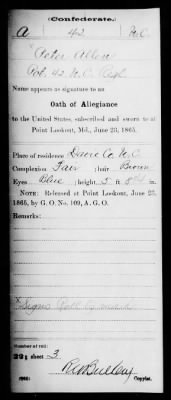 (Confederate.)
A 42 N.C.
Peter Allen
Pvt. 42 N.C. Regt.
Name appears as signature to an
Oath of Allegiance
to the United States, subscribed and sworn to at
Point Lookout, Md., June 23, 1865.
Place of residence Davie Co. N.C.
Complexion Fair ; hair Brown
Eyes Blue ; height 5 ft.
NOTE.—Released at Point Lookout, June 23,
1865, by G. O. No. 109, A. G. O.
Remarks:
x Signs Roll by mark
Number of roll:
sheet 3
Copyist.